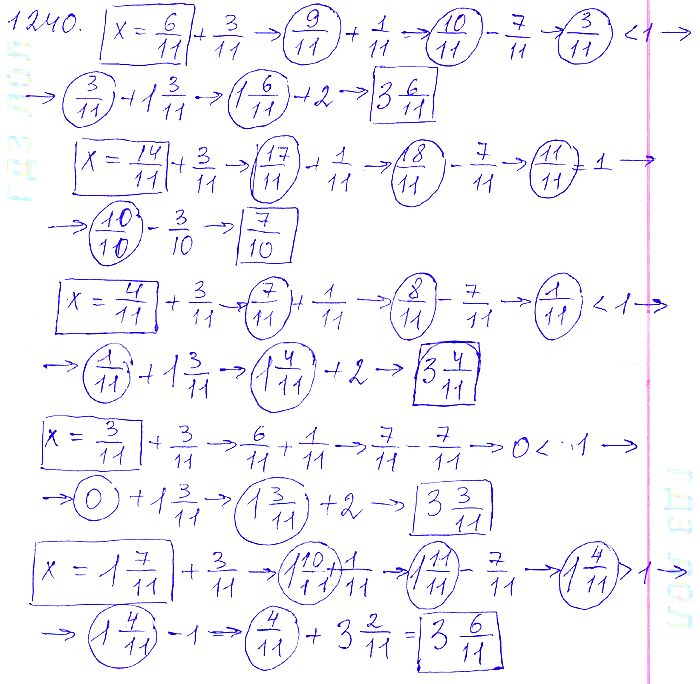 1240. x = 6/11 + 3/11 → 9/11 + 1/11 → 10/11 - 7/11 → 3/11 < 1 →
→ 3/11 + 1 3/11 → 1 6/11 + 2 → 3 6/11
x = 14/11 + 3/11 → 17/11 + 1/11 → 18/11 - 7/11 → 11/11 = 1 →
→ 10/10 - 3/10 → 7/10
x = 4/11 + 3/11 → 7/11 + 1/11 → 8/11 - 7/11 → 1/11 < 1 →
→ 1/11 + 1 3/11 → 1 4/11 + 2 → 3 4/11
x = 3/11 + 3/11 → 6/11 + 1/11 → 7/11 - 7/11 → 0 < 1 →
→ 0 + 1 3/11 → 1 3/11 + 2 → 3 3/11
x = 1 7/11 + 3/11 → 1 10/11 + 1/11 → 1 11/11 - 7/11 → 1 4/11 > 1 →
→ 1 4/11 - 1 → 4/11 + 3 2/11 = 3 6/11